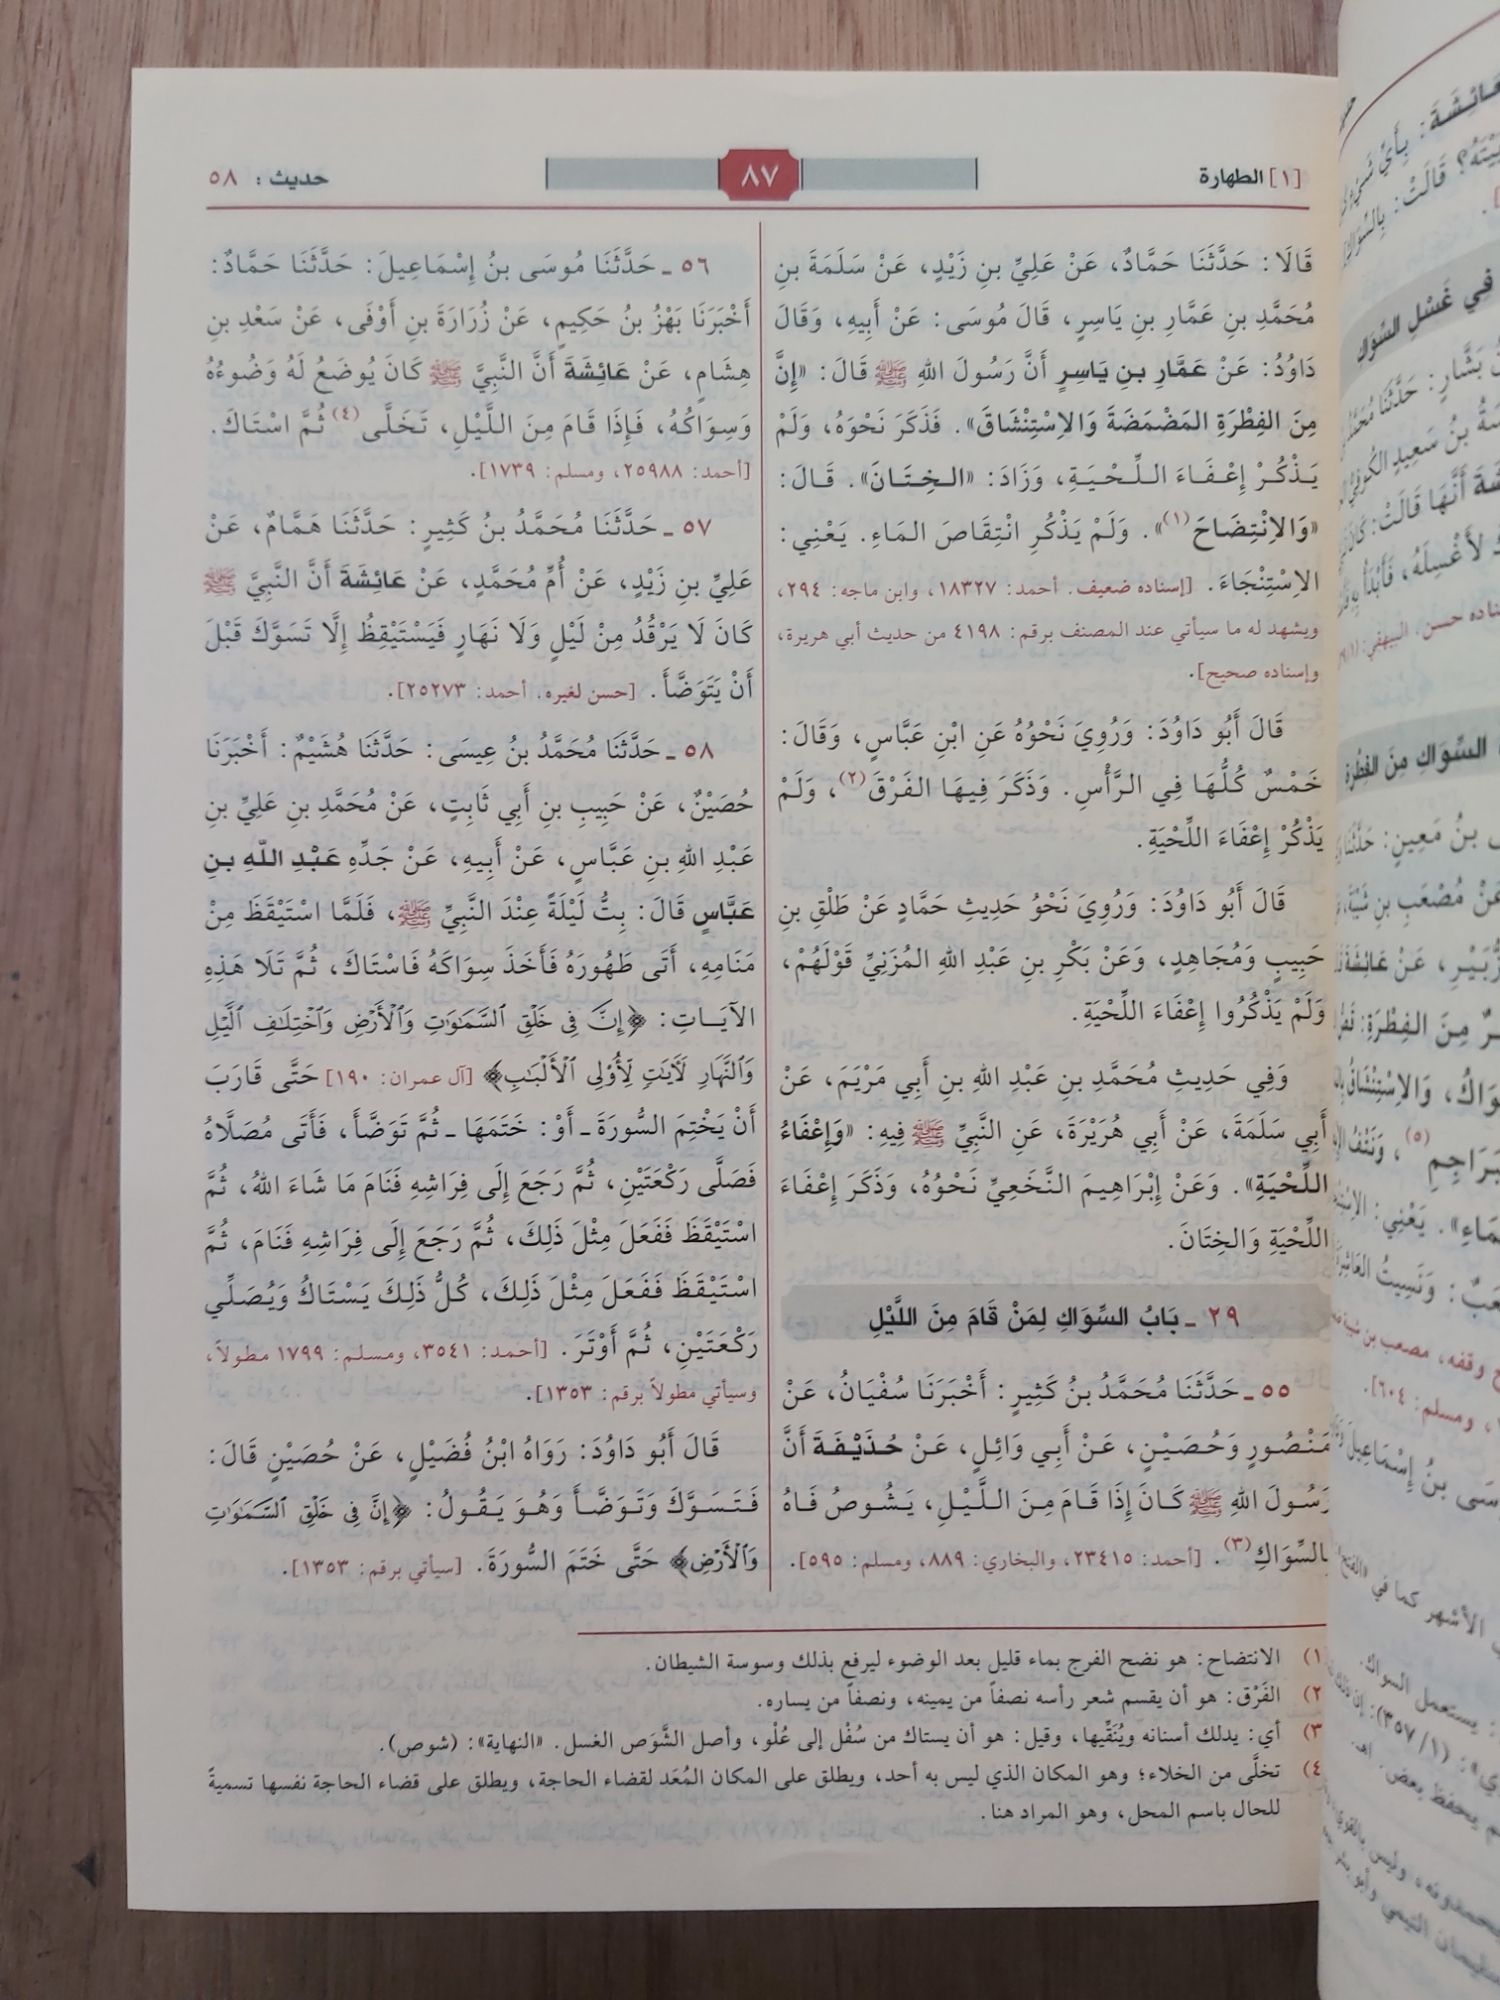 [١] الطهارة
٨٧
حديث : ٥٨
قَالَا: حَدَّثَنَا حَمَّادٌ، عَنْ عَلِيِّ بنِ زَيْدٍ، عَنْ سَلَمَةَ بنِ
مُحَمَّدِ بنِ عَمَّارِ بنِ يَاسِرٍ، قَالَ مُوسَى: عَنْ أَبِيهِ، وَقَالَ
دَاوُدُ: عَنْ عَمَّارِ بنِ يَاسِرٍ أَنَّ رَسُولَ اللهِ ﷺ قَالَ: «إِنَّ
مِنَ الفِطْرَةِ المَضْمَضَةَ وَالِاسْتِنْشَاقَ». فَذَكَرَ نَحْوَهُ، وَلَمْ
يَذْكُرْ إِعْفَاءَ اللِّحْيَةِ، وَزَادَ: «الخِتَانَ». قَالَ:
«وَالِانْتِضَاحَ(١)». وَلَمْ يَذْكُرِ انْتِقَاصَ المَاءِ. يَعْنِي:
الِاسْتِنْجَاءَ. [إسناده ضعيف. أحمد: ١٨٣٢٧، وابن ماجه: ٢٩٤،
ويشهد له ما سيأتي عند المصنف برقم: ٤١٩٨ من حديث أبي هريرة،
وإسناده صحيح].
قَالَ أَبُو دَاوُدَ: وَرُوِيَ نَحْوُهُ عَنِ ابْنِ عَبَّاسٍ، وَقَالَ:
خَمْسٌ كُلُّهَا فِي الرَّأْسِ. وَذَكَرَ فِيهَا الفَرْقَ(٢)، وَلَمْ
يَذْكُرْ إِعْفَاءَ اللِّحْيَةِ.
قَالَ أَبُو دَاوُدَ: وَرُوِيَ نَحْوُ حَدِيثِ حَمَّادٍ عَنْ طَلْقِ بنِ
حَبِيبٍ وَمُجَاهِدٍ، وَعَنْ بَكْرِ بنِ عَبْدِ اللهِ المُزَنِيِّ قَوْلَهُمْ،
وَلَمْ يَذْكُرُوا إِعْفَاءَ اللِّحْيَةِ.
وَفِي حَدِيثِ مُحَمَّدِ بنِ عَبْدِ اللهِ بنِ أَبِي مَرْيَمَ، عَنْ
أَبِي سَلَمَةَ، عَنْ أَبِي هُرَيْرَةَ، عَنِ النَّبِيِّ ﷺ فِيهِ: «وَإِعْفَاءُ
اللِّحْيَةِ». وَعَنْ إِبْرَاهِيمَ النَّخَعِيِّ نَحْوُهُ، وَذَكَرَ إِعْفَاءَ
اللِّحْيَةِ وَالخِتَانَ.
٢٩ ـ بَابُ السِّوَاكِ لِمَنْ قَامَ مِنَ اللَّيْلِ
٥٥ ـ حَدَّثَنَا مُحَمَّدُ بنُ كَثِيرٍ: أَخْبَرَنَا سُفْيَانُ، عَنْ
مَنْصُورٍ وَحُصَيْنٍ، عَنْ أَبِي وَائِلٍ، عَنْ حُذَيْفَةَ أَنَّ
رَسُولَ اللهِ ﷺ كَانَ إِذَا قَامَ مِنَ اللَّيْلِ، يَشُوصُ فَاهُ
بِالسِّوَاكِ(٣). [أحمد: ٢٣٤١٥، والبخاري: ٨٨٩، ومسلم: ٥٩٥].
٥٦ ـ حَدَّثَنَا مُوسَى بنُ إِسْمَاعِيلَ: حَدَّثَنَا حَمَّادٌ:
أَخْبَرَنَا بَهْزُ بنُ حَكِيمٍ، عَنْ زُرَارَةَ بنِ أَوْفَى، عَنْ سَعْدِ بنِ
هِشَامٍ، عَنْ عَائِشَةَ أَنَّ النَّبِيَّ ﷺ كَانَ يُوضَعُ لَهُ وَضُوءُهُ
وَسِوَاكُهُ، فَإِذَا قَامَ مِنَ اللَّيْلِ، تَخَلَّى(٤) ثُمَّ اسْتَاكَ.
[أحمد: ٢٥٩٨٨، ومسلم: ١٧٣٩].
٥٧ ـ حَدَّثَنَا مُحَمَّدُ بنُ كَثِيرٍ: حَدَّثَنَا هَمَّامٌ، عَنْ
عَلِيِّ بنِ زَيْدٍ، عَنْ أُمِّ مُحَمَّدٍ، عَنْ عَائِشَةَ أَنَّ النَّبِيَّ ﷺ
كَانَ لَا يَرْقُدُ مِنْ لَيْلٍ وَلَا نَهَارٍ فَيَسْتَيْقِظُ إِلَّا تَسَوَّكَ قَبْلَ
أَنْ يَتَوَضَّأَ. [حسن لغيره. أحمد: ٢٥٢٧٣].
٥٨ ـ حَدَّثَنَا مُحَمَّدُ بنُ عِيسَى: حَدَّثَنَا هُشَيْمٌ: أَخْبَرَنَا
حُصَيْنٌ، عَنْ حَبِيبِ بنِ أَبِي ثَابِتٍ، عَنْ مُحَمَّدِ بنِ عَلِيِّ بنِ
عَبْدِ اللهِ بنِ عَبَّاسٍ، عَنْ أَبِيهِ، عَنْ جَدِّهِ عَبْدِ اللهِ بنِ
عَبَّاسٍ قَالَ: بِتُّ لَيْلَةً عِنْدَ النَّبِيِّ ﷺ، فَلَمَّا اسْتَيْقَظَ مِنْ
مَنَامِهِ، أَتَى طَهُورَهُ فَأَخَذَ سِوَاكَهُ فَاسْتَاكَ، ثُمَّ تَلَا هَذِهِ
الآيَاتِ: ﴿إِنَّ فِي خَلْقِ السَّمَٰوَٰتِ وَالْأَرْضِ وَاخْتِلَٰفِ الَّيْلِ
وَالنَّهَارِ لَأَيَٰتٍ لِّأُوْلِي الْأَلْبَٰبِ﴾ [آل عمران: ١٩٠] حَتَّى قَارَبَ
أَنْ يَخْتِمَ السُّورَةَ ـ أَوْ: خَتَمَهَا ـ ثُمَّ تَوَضَّأَ، فَأَتَى مُصَلَّاهُ
فَصَلَّى رَكْعَتَيْنِ، ثُمَّ رَجَعَ إِلَى فِرَاشِهِ فَنَامَ مَا شَاءَ اللهُ، ثُمَّ
اسْتَيْقَظَ فَفَعَلَ مِثْلَ ذَلِكَ، ثُمَّ رَجَعَ إِلَى فِرَاشِهِ فَنَامَ، ثُمَّ
اسْتَيْقَظَ فَفَعَلَ مِثْلَ ذَلِكَ، كُلُّ ذَلِكَ يَسْتَاكُ وَيُصَلِّي
رَكْعَتَيْنِ، ثُمَّ أَوْتَرَ. [أحمد: ٣٥٤١، ومسلم: ١٧٩٩ مطولاً،
وسيأتي مطولاً برقم: ١٣٥٣].
قَالَ أَبُو دَاوُدَ: رَوَاهُ ابْنُ فُضَيْلٍ، عَنْ حُصَيْنٍ قَالَ:
فَتَسَوَّكَ وَتَوَضَّأَ وَهُوَ يَقُولُ: ﴿إِنَّ فِي خَلْقِ السَّمَٰوَٰتِ
وَالْأَرْضِ﴾ حَتَّى خَتَمَ السُّورَةَ. [سيأتي برقم: ١٣٥٣].
١) الانتضاح: هو نضح الفرج بماء قليل بعد الوضوء ليرفع بذلك وسوسة الشيطان.
٢) الفَرْق: هو أن يقسم شعر رأسه نصفاً من يمينه، ونصفاً من يساره.
٣) أي: يدلك أسنانه ويُنَقِّيها، وقيل: هو أن يستاك من سُفْل إلى عُلْو، وأصل الشَّوَص الغسل. «النهاية»: (شوص).
٤) تخلَّى من الخلاء؛ وهو المكان الذي ليس به أحد، ويطلق على المكان المُعَد لقضاء الحاجة، ويطلق على قضاء الحاجة نفسها تسميةً
للحال باسم المحل، وهو المراد هنا.
عَائِشَةَ: بِأَيِّ شَيْءٍ
قَالَتْ: بِالسِّوَاكِ
فِي غَسْلِ السِّوَاكِ
بَشَّارٍ: حَدَّثَنَا
بنُ سَعِيدٍ الكُوفِيُّ
أَنَّهَا قَالَتْ: كَانَ
لِأَغْسِلَهُ، فَأَبْدَأُ بِهِ
حسن. البيهقي:
السِّوَاكِ مِنَ الفِطْرَةِ
بنُ مَعِينٍ: حَدَّثَنَا
عَنْ مُصْعَبِ بنِ شَيْبَةَ،
عَنْ عَائِشَةَ
مِنَ الفِطْرَةِ:
وَالِاسْتِنْشَاقُ
(٥)، وَنَتْفُ
يَعْنِي:
وَنَسِيتُ العَاشِرَةَ
وقفه، مصعب بن شيبة
، ومسلم: ٦٠٤].
بنُ إِسْمَاعِيلَ
الأشهر كما في «الفتح
: يستعمل السواك.
(١/ ٣٥٧):